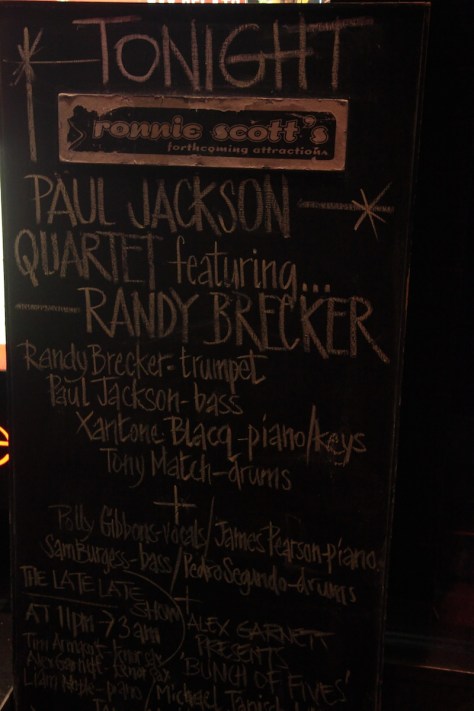 TONIGHT
ronnie scott's
forthcoming attractions
PAUL JACKSON
QUARTET featuring...
RANDY BRECKER
Randy Brecker-trumpet
Paul Jackson-bass
Xantone Blacq-piano/keys
Tony Match-drums
+
Polly Gibbons-vocals/James Pearson-piano
Sam Burgess-bass/Pedro Segundo-drums
+
THE LATE LATE
SHOW
AT 11pm → 3am
ALEX GARNETT
PRESENTS
'BUNCH OF FIVES'
Alex Garnett
Michael